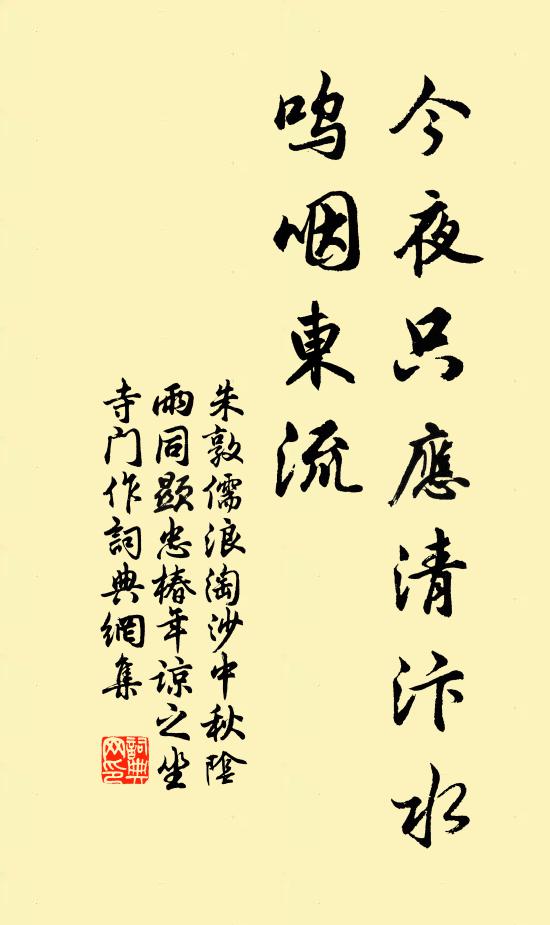 今夜只應清汴水
嗚咽東流
朱敦儒浪淘沙中秋陰
雨同顯忠椿年諒之坐
寺门作詞典網集
詞典
网印